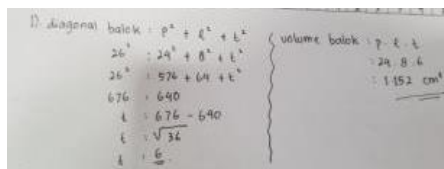 1). diagonal balok : p² + l² + t²
26² : 24² + 8² + t²
26² : 576 + 64 + t²
676 : 640
t : 676 - 640
t : √36
t : 6
volume balok : p . l . t
: 24 . 8 . 6
: 1.152 cm³